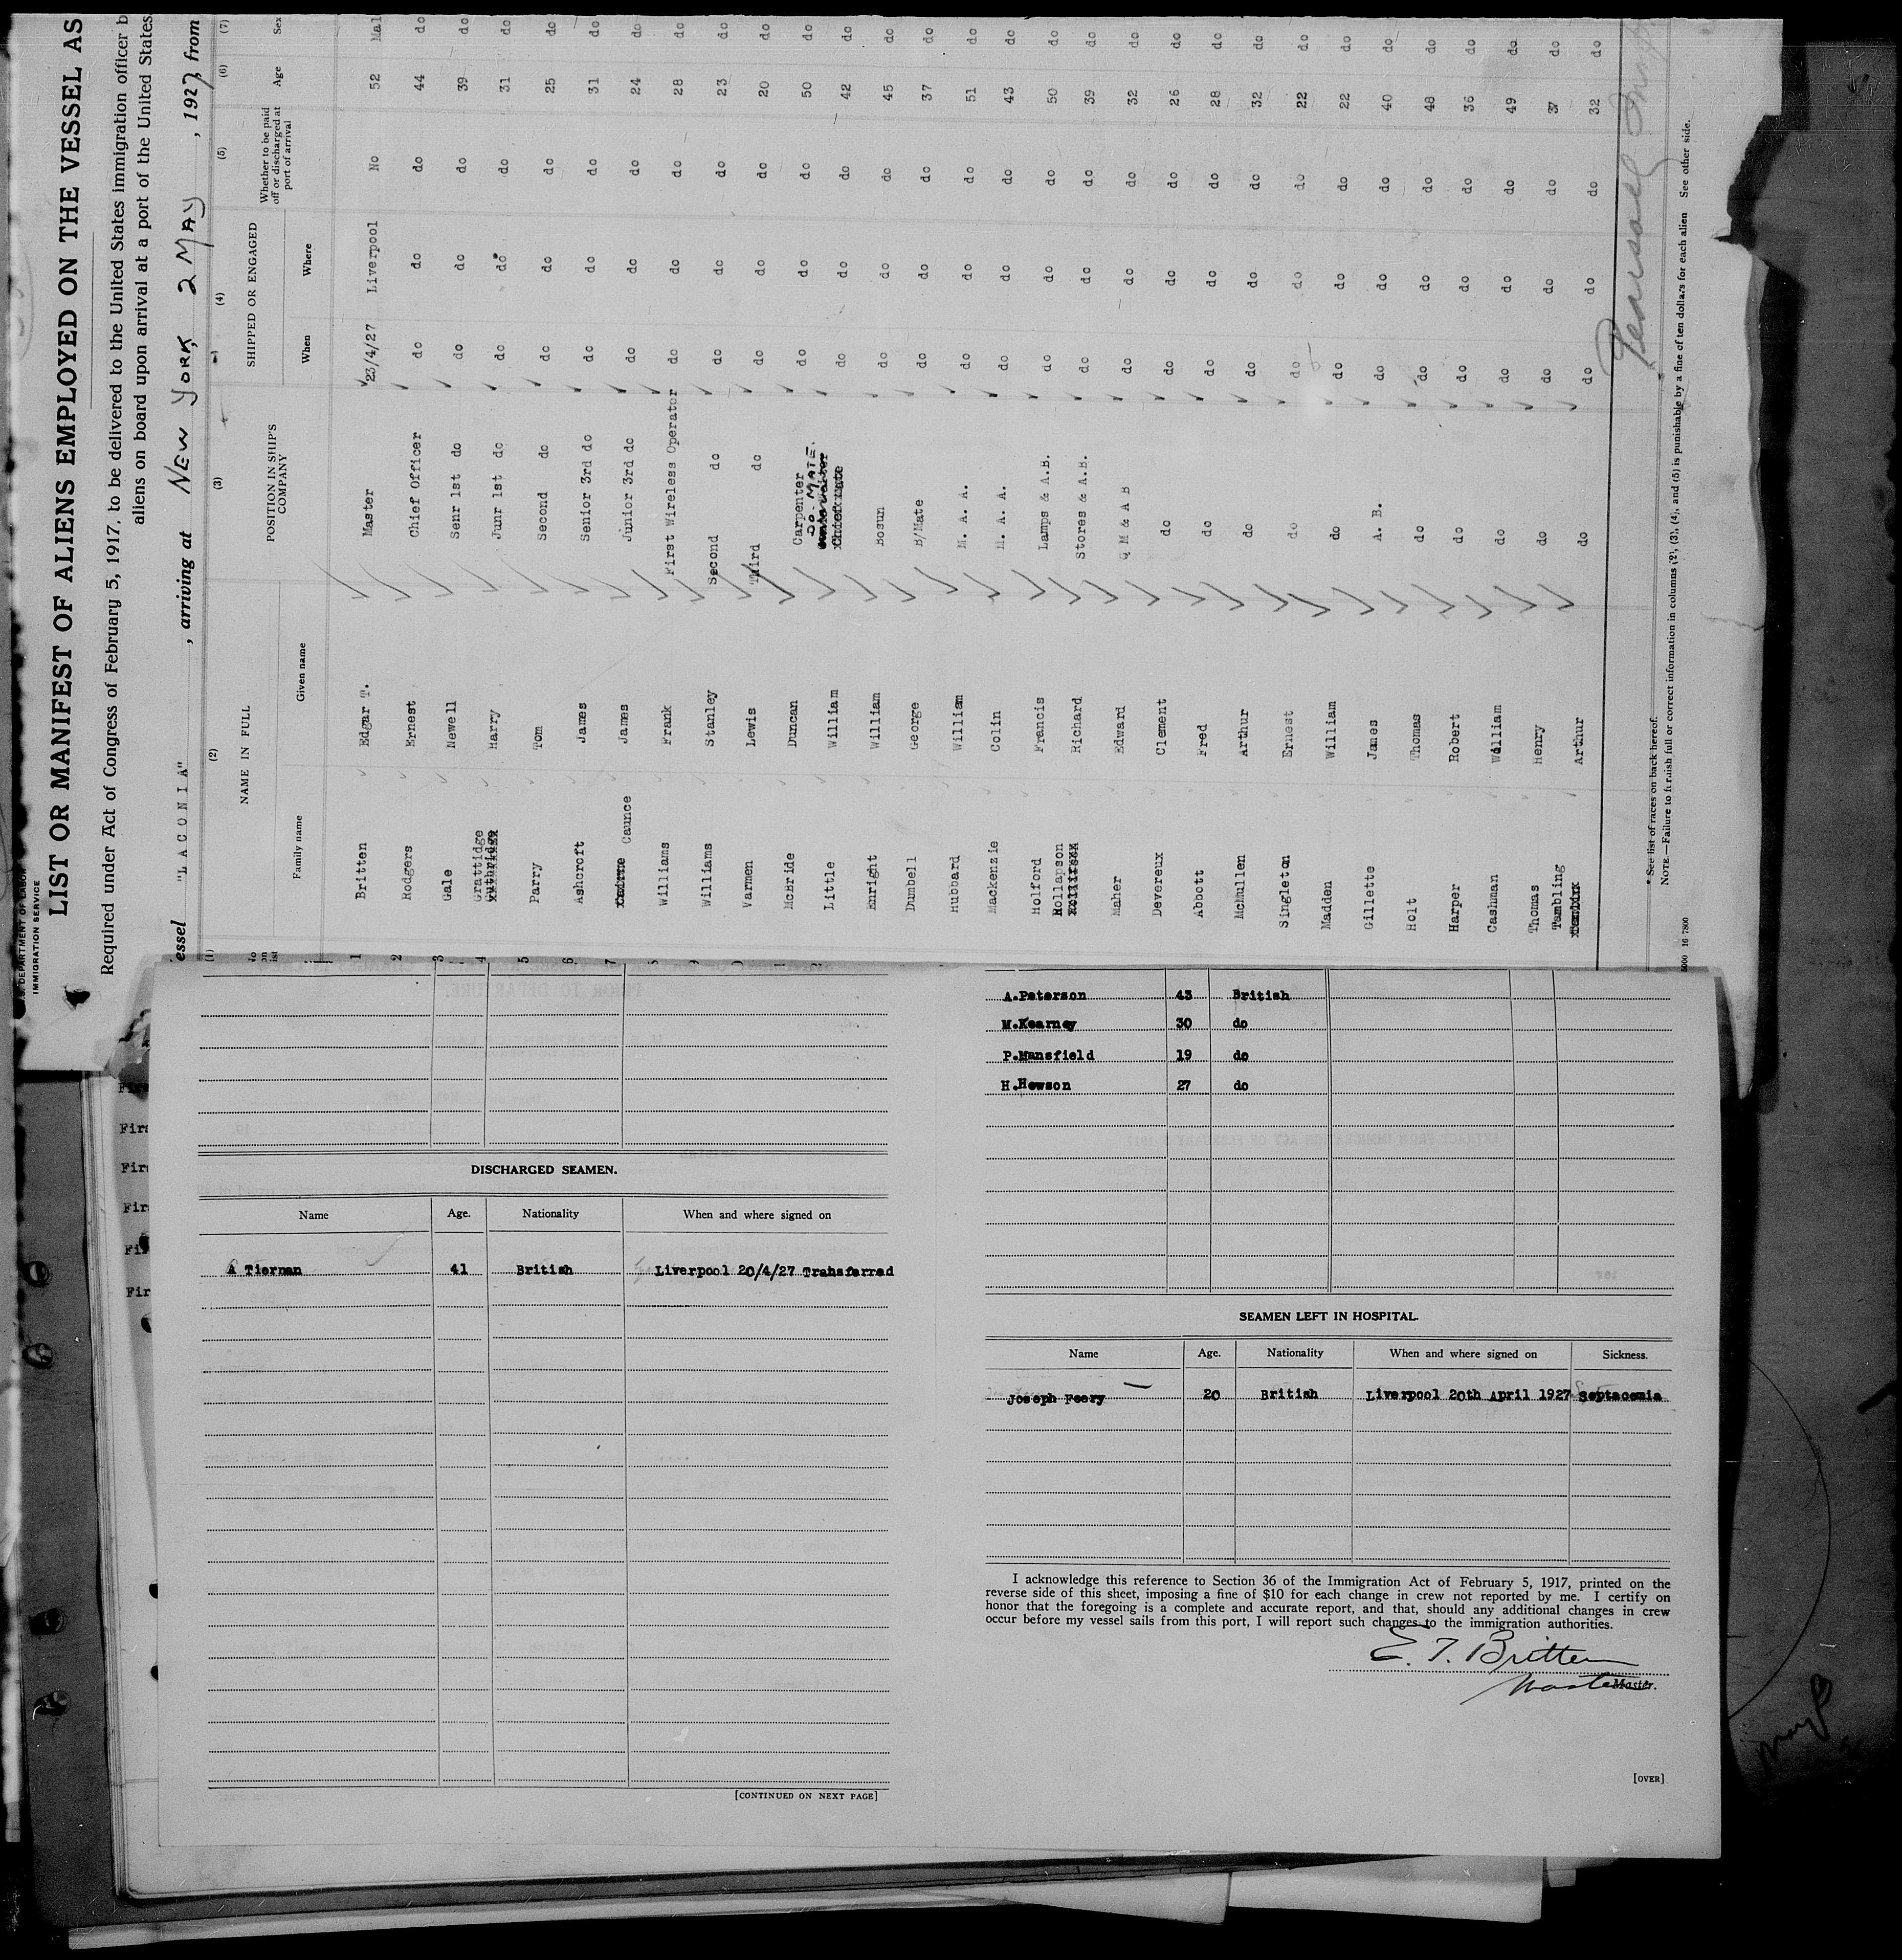 U.S. DEPARTMENT OF LABOR
IMMIGRATION SERVICE
LIST OR MANIFEST OF ALIENS EMPLOYED ON THE VESSEL AS
Required under Act of Congress of February 5, 1917, to be delivered to the United States immigration officer b
aliens on board upon arrival at a port of the United States
essel "LACONIA" , arriving at NEW YORK 2 MAY , 1927, from
(1) (2) (3) (4) (5) (6) (7)
No on ist NAME IN FULL POSITION IN SHIP'S COMPANY SHIPPED OR ENGAGED Whether to be paid off or discharged at port of arrival Age Sex
Family name Given name When Where
1 Britten Edgar T. Master 23/4/27 Liverpool No 52 Mal
2 Rodgers Ernest Chief Officer do do do 44 do
3 Gale Newell Senr 1st do do do do 39 do
4 Grattidge Harry Junr 1st do do do do 31 do
5 Parry Tom Second do do do do 25 do
6 Ashcroft James Senior 3rd do do do do 31 do
7 Caunce James Junior 3rd do do do do 24 do
8 Williams Frank First Wireless Operator do do do 28 do
9 Williams Stanley Second do do do do 23 do
0 Varmen Lewis Third do do do do 20 do
1 McBride Duncan Carpenter do do do 50 do
2 Little William DO. MATE. do do do 42 do
Enright William Bosun do do do 45 do
Dumbell George B/Mate do do do 37 do
Hubbard William M. A. A. do do do 51 do
Mackenzie Colin M. A. A. do do do 43 do
Holford Francis Lamps & A.B. do do do 50 do
Rollapson Richard Stores & A.B. do do do 39 do
Maher Edward Q M & A B do do do 32 do
Devereux Clement do do do do 26 do
Abbott Fred do do do do 28 do
McMullen Arthur do do do do 32 do
Singleton Ernest do do do do 22 do
Madden William do do do do 22 do
Gillette James A. B. do do do 40 do
Holt Thomas do do do do 48 do
Harper Robert do do do do 36 do
Cashman William do do do do 49 do
Thomas Henry do do do do 37 do
Tambling Arthur do do do do 32 do
* See list of races on back hereof.
NOTE.—Failure to furnish full or correct information in columns (2), (3), (4), and (5) is punishable by a fine of ten dollars for each alien See other side.
16-7800
DISCHARGED SEAMEN.
Name Age. Nationality When and where signed on
A Tiernan 41 British Liverpool 20/4/27 Transferred
[CONTINUED ON NEXT PAGE]
A.Peterson 43 British
M.Kearney 30 do
P.Mansfield 19 do
H.Hewson 27 do
SEAMEN LEFT IN HOSPITAL.
Name Age. Nationality When and where signed on Sickness.
Joseph Feery 20 British Liverpool 20th April 1927 Septacemia
I acknowledge this reference to Section 36 of the Immigration Act of February 5, 1917, printed on the
reverse side of this sheet, imposing a fine of $10 for each change in crew not reported by me. I certify on
honor that the foregoing is a complete and accurate report, and that, should any additional changes in crew
occur before my vessel sails from this port, I will report such changes to the immigration authorities.
E. T. Britten
Master Master.
[OVER]